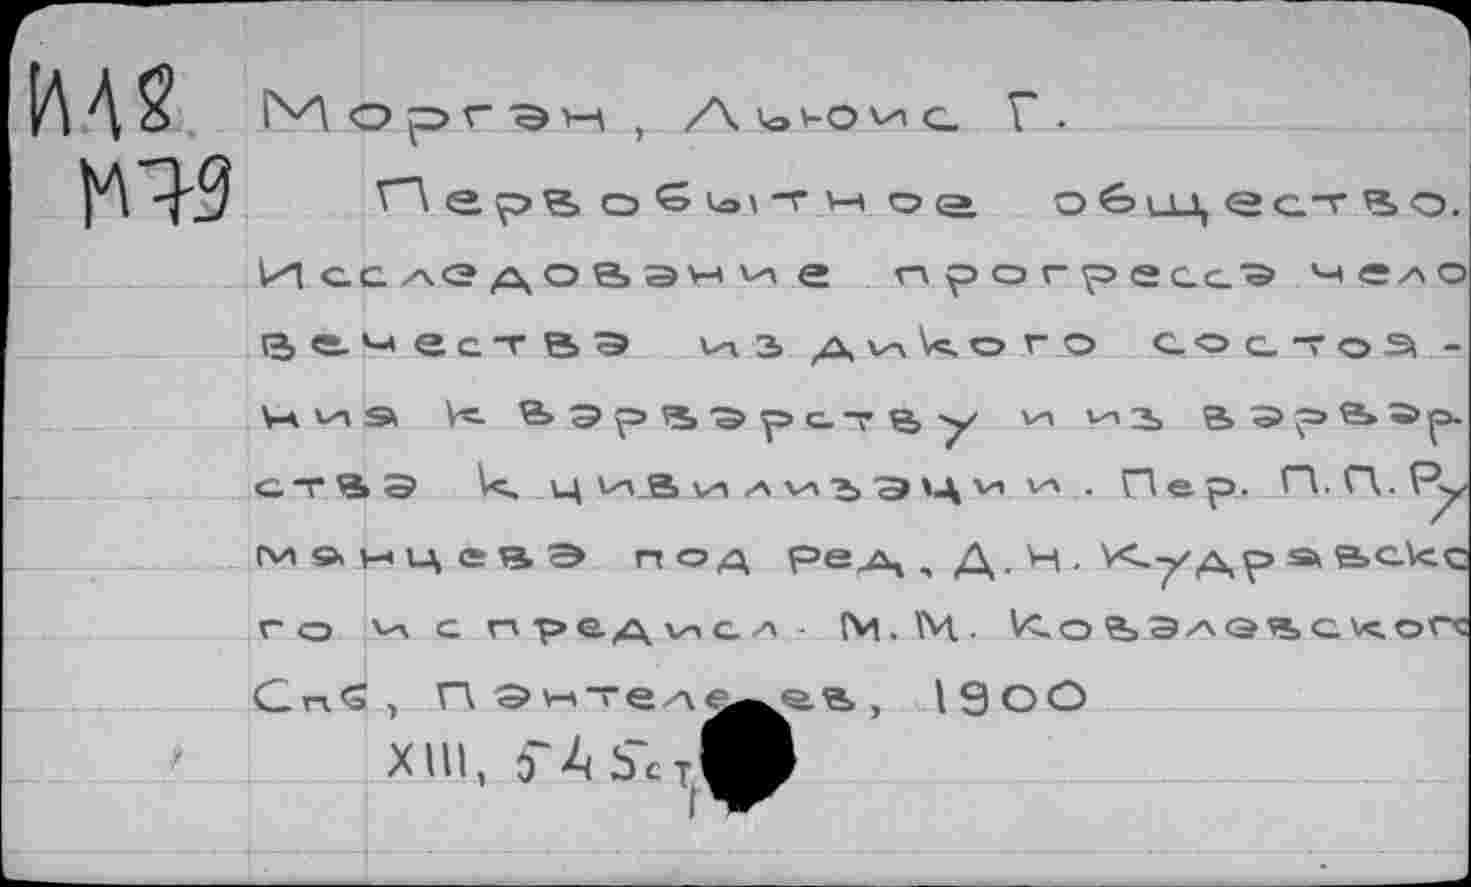 ИЛ8 Морган, Льюис Г.
М79 Первобытное общество.
Исследование прогресса чело
вечества из дикого состоя-
ния к варварству и из варвар-
ства к цивилизации. Пер. П.П.Ру
мянцева под ред. Д.Н. Кудрявско
го и с предисл. М.М. Ковалевского
Спб, Пантелеев, 1900
XIII, 545 ст